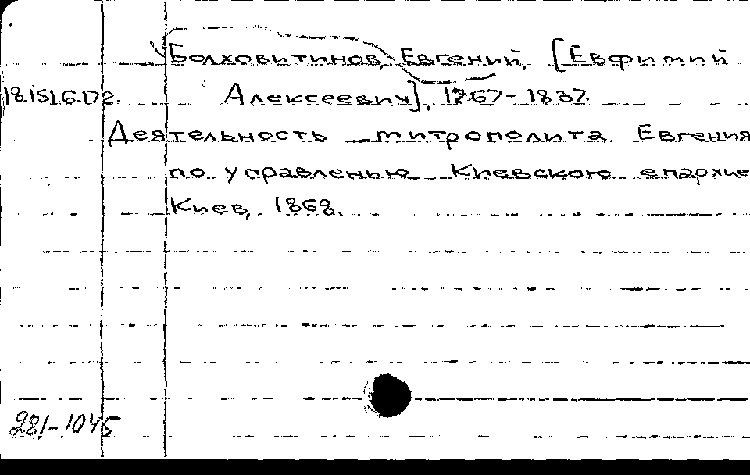 Болховитинов, Евгений, [Евфимий
18.151.6.D2. Алексеевич], 1767-1837.
Деятельность митрополита Евгения
по управленью Киевскою епархие
Киев, 1868.
281-1045